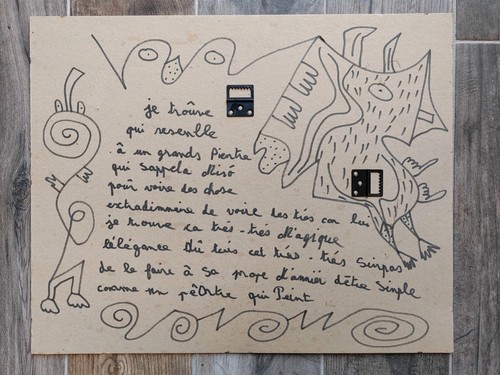 je trouve
qui resenble
à un grands Pientre
qui sappela Miró
pour voire les chose
extradimmine de voire les très con lui
je trouve ca très-très Magique
l'élégance tu tuis cet très-très simpas
de le faire à sa prope d'annier d'être simple
comme un pêOntre qui Peint